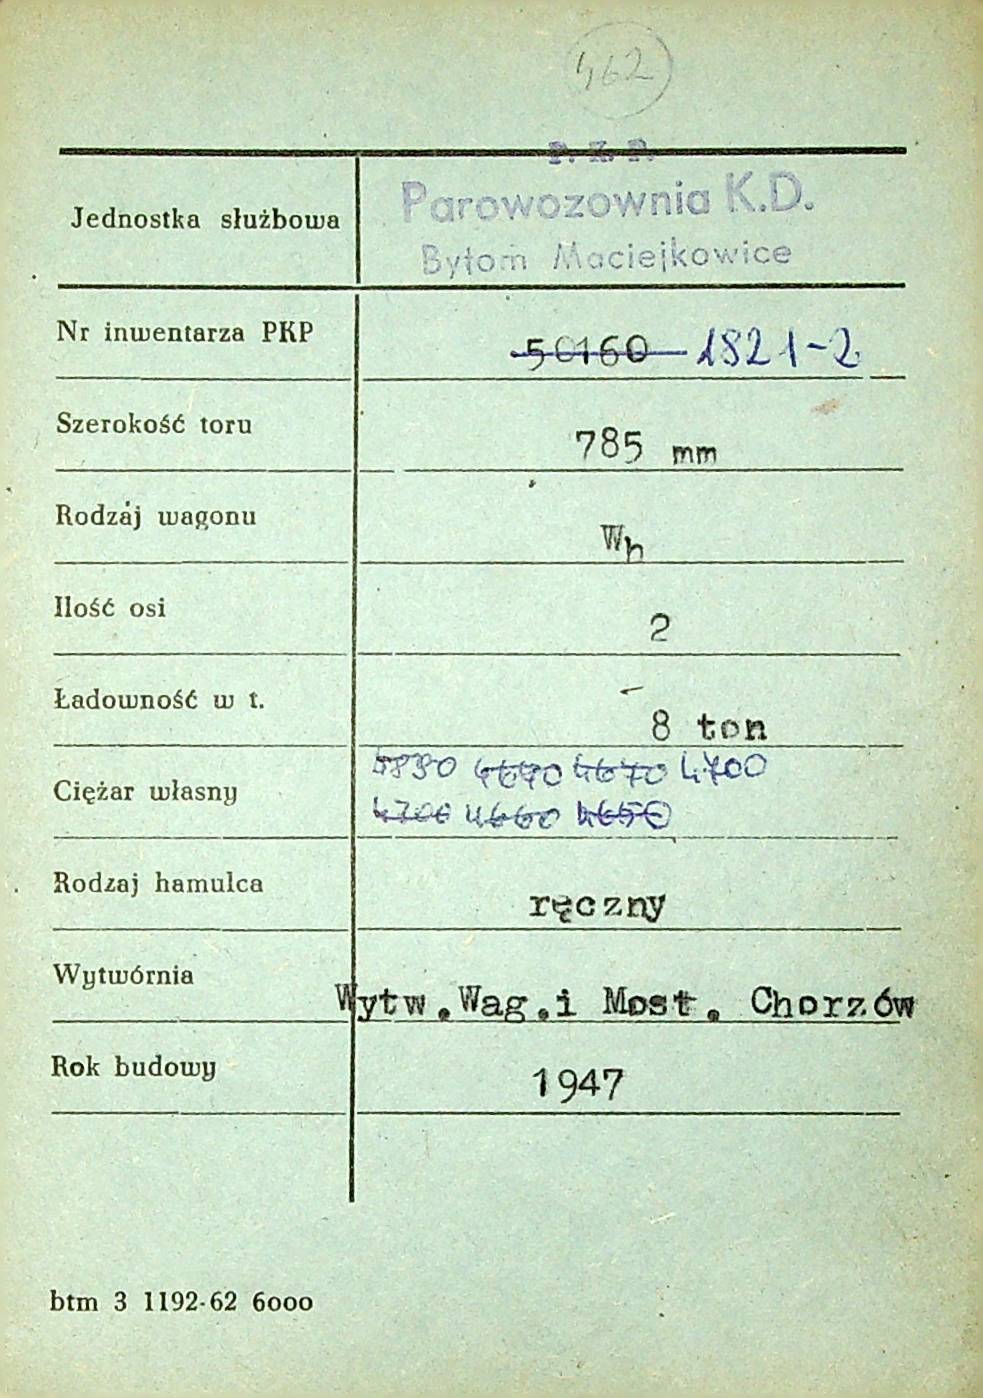 462
P. K. P.
Jednostka służbowa Parowozownia K.D.
Bytom Maciejkowice
Nr inwentarza PKP 50160 1821-2
Szerokość toru 785 mm
Rodzaj wagonu Wh
Ilość osi 2
Ładowność w t. 8 ton
4670 4670 4700
Ciężar własny
4700 4660 4650
Rodzaj hamulca ręczny
Wytwórnia Wytw.Wag.i Most. Chorzów
Rok budowy 1947
btm 3 1192-62 6000